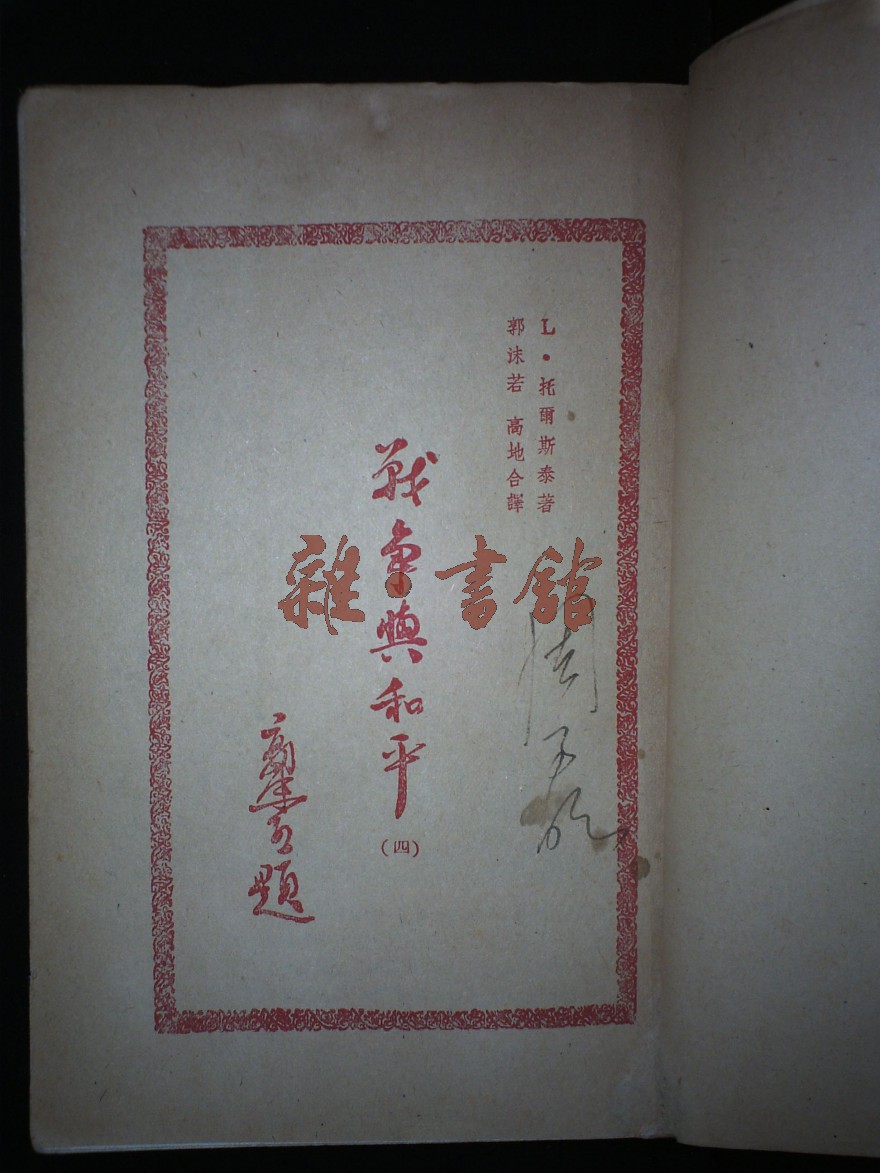 L·托爾斯泰著
郭沫若 高地合譯
戰爭與和平
(四)
郭沫若題
雜·書館